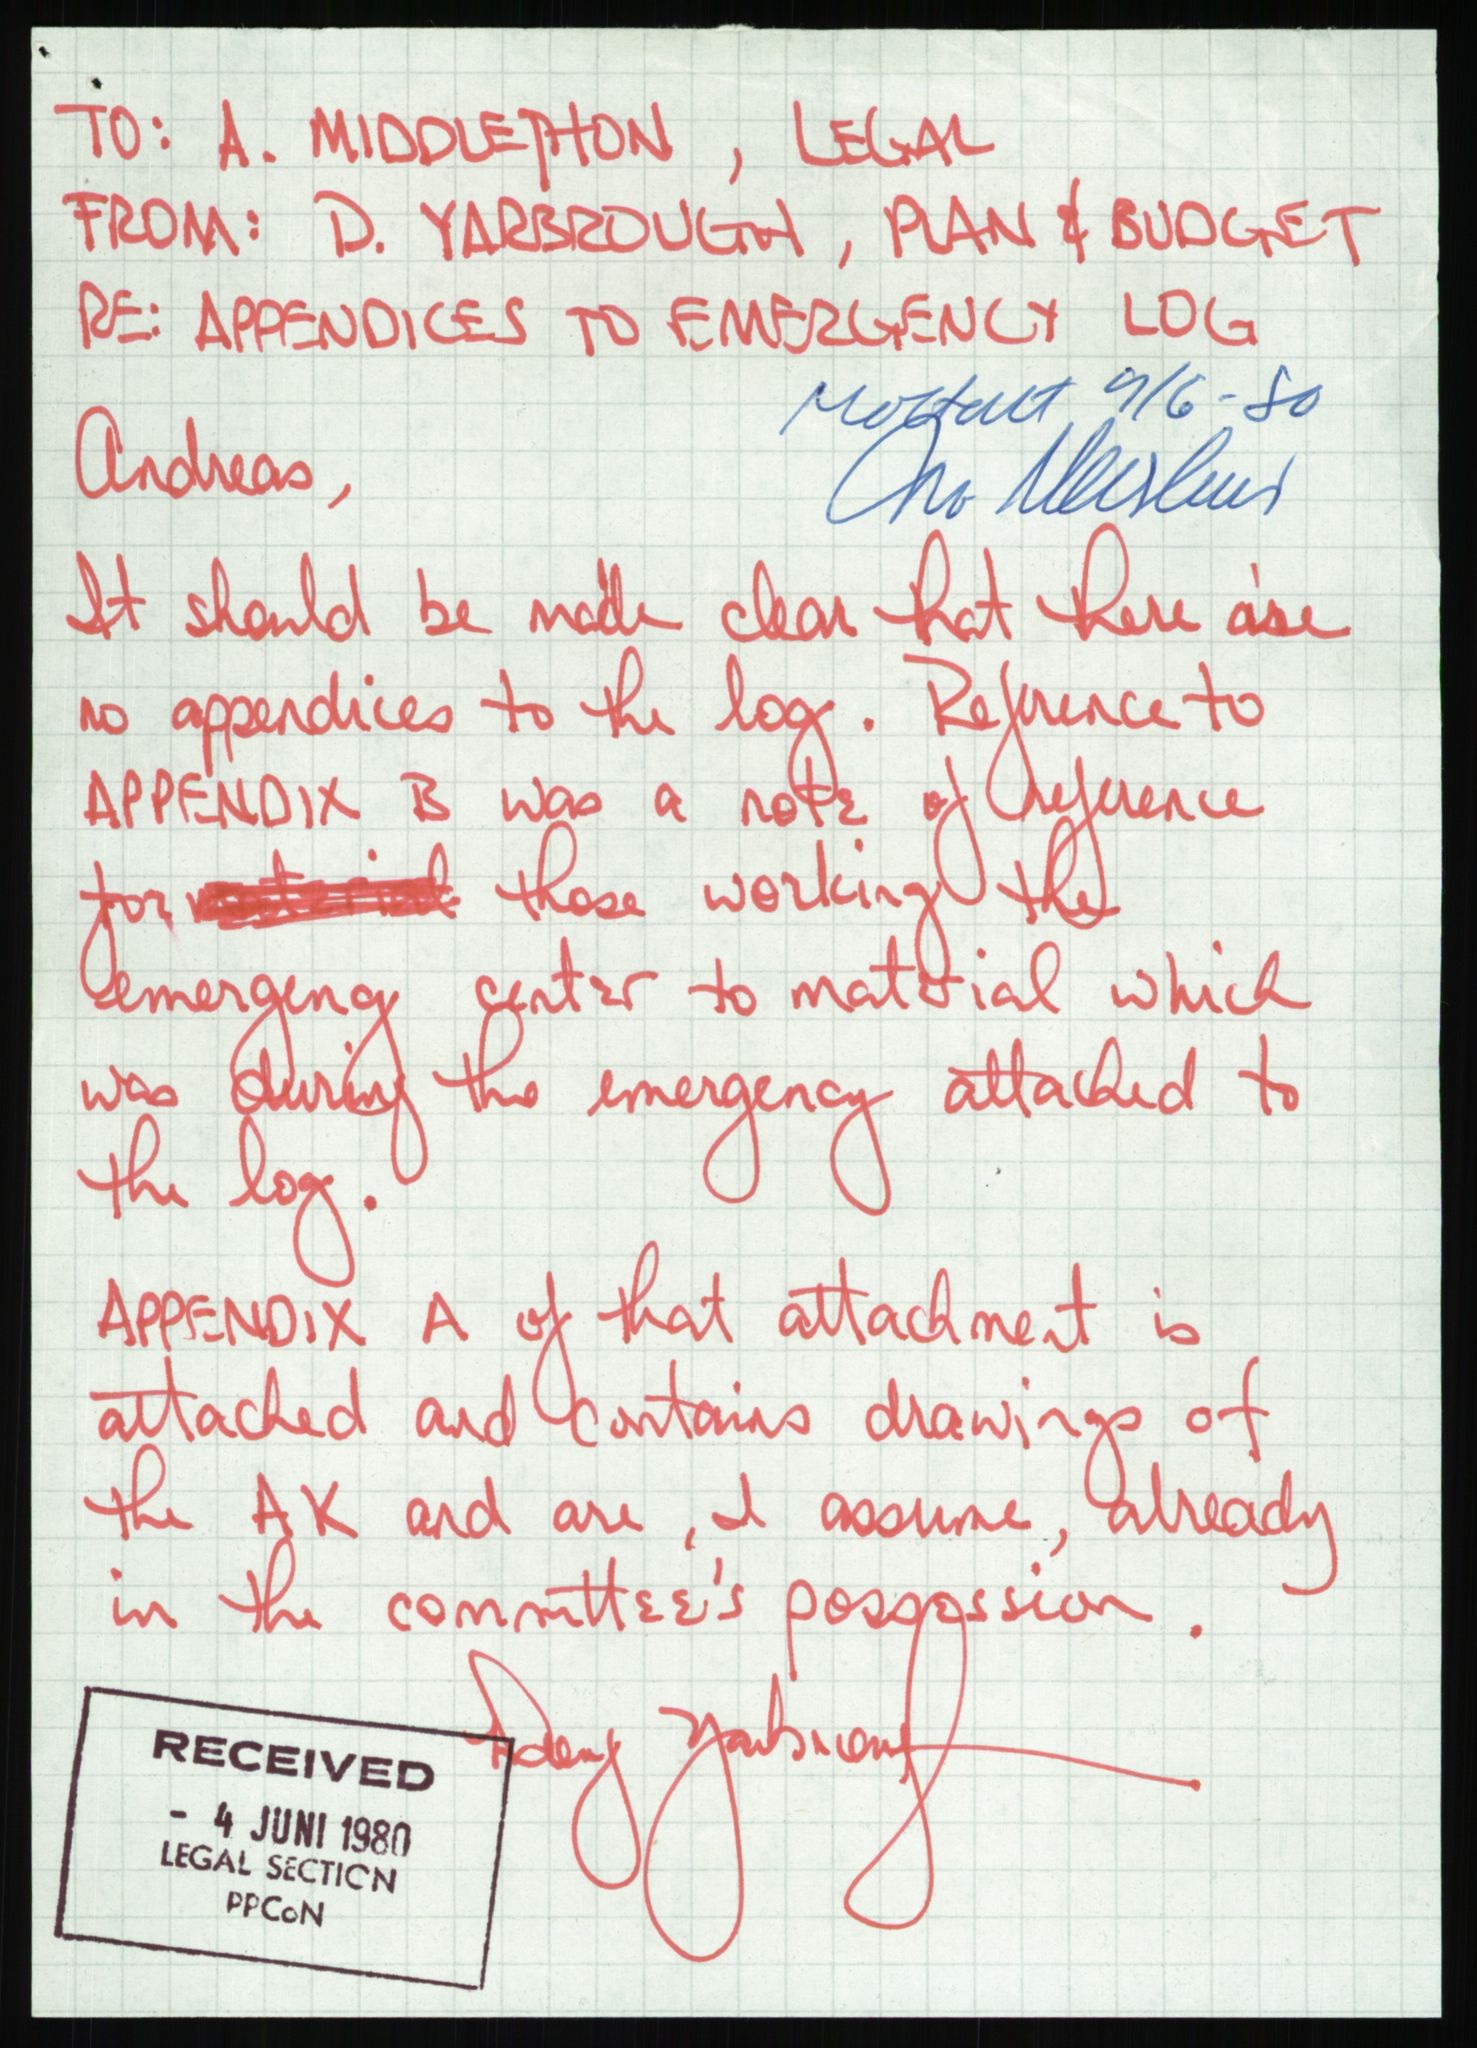 TO: A. MIDDLETHON, LEGAL
FROM: D. YARBROUGH, PLAN & BUDGET
RE: APPENDICES TO EMERGENCY LOG
Mottatt 9/6-80
Andreas,
It should be made clear that there are
no appendices to the log. Reference to
APPENDIX B was a note of reference
for those working the
emergency center to material which
was during the emergency attached to
the log.
APPENDIX A of that attachment is
attached and contains drawings of
the AK and are, I assume, already
in the committee's possession.
Yarbrough
RECEIVED
- 4 JUNI 1980
LEGAL SECTION
PPCoN